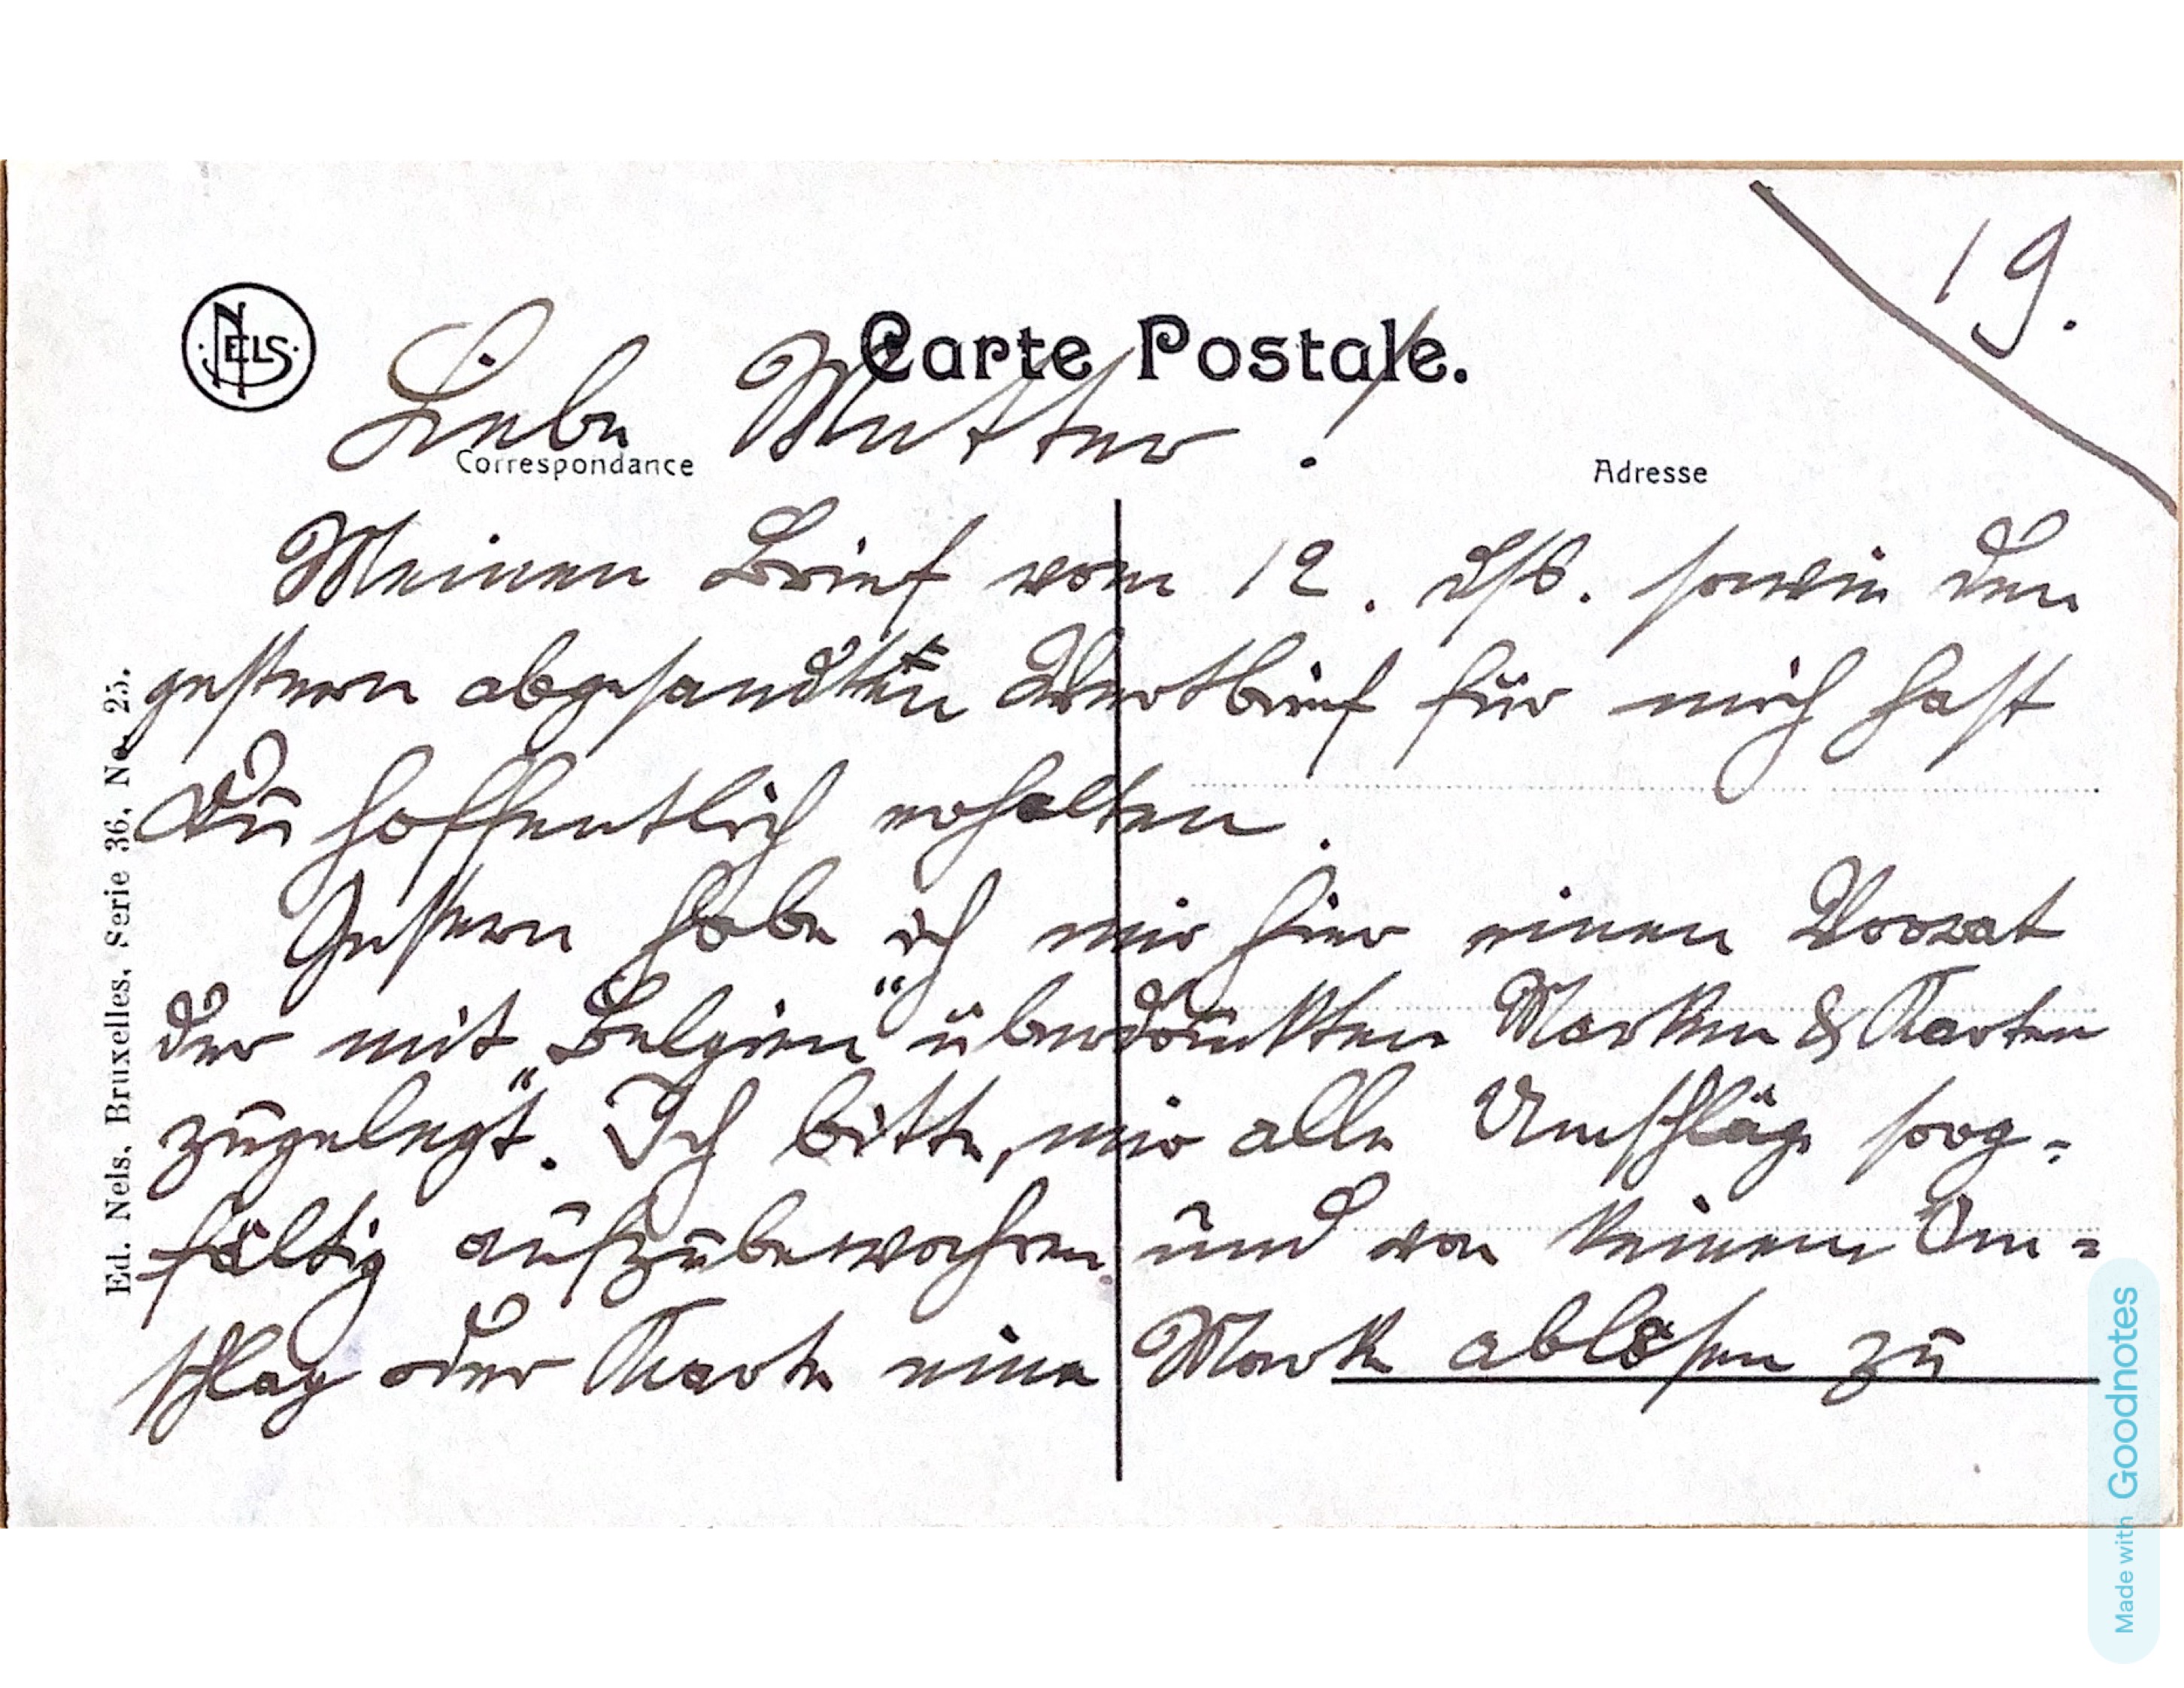 19.
NELS
Carte Postale.
Liebe Mutter!
Correspondance
Adresse
Meinen Brief vom 12. dss. sowie den
gestern abgesandten Wertbrief für mich hast
Du hoffentlich erhalten.
Gestern habe ich mir hier einen Vorrat
der mit „Belgien“ überdruckten Marken & Karten
zugelegt. Ich bitte, mir alle Umschläge sorg=
fältig aufzubewahren und von keinem Um=
schlag oder Karte eine Marke ablösen zu
Ed. Nels, Bruxelles, Serie 36, No. 25.
Made with Goodnotes